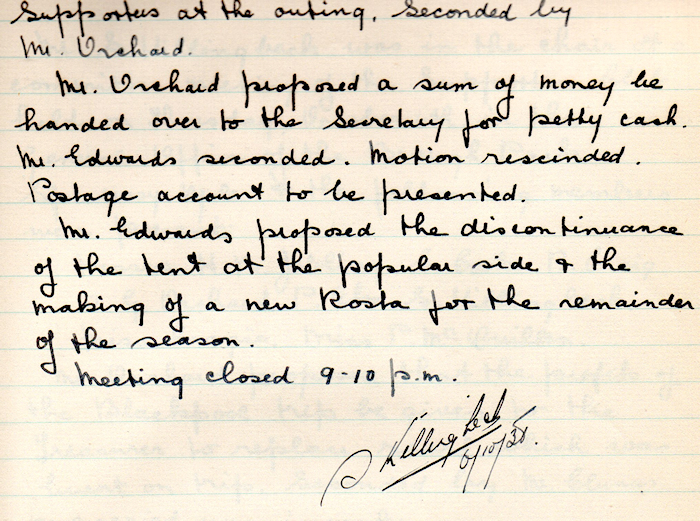 Supporters at the outing. Seconded by
Mr. Orchard.
Mr. Orchard proposed a sum of money be
handed over to the Secretary for petty cash.
Mr. Edwards seconded. Motion rescinded.
Postage account to be presented.
Mr. Edwards proposed the discontinuance
of the tent at the popular side & the
making of a new Rosta for the remainder
of the season.
Meeting closed 9-10 p.m.
Killingbeck